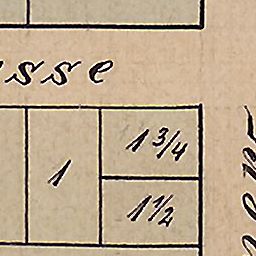 sse
1 3/4
1
1 1/2